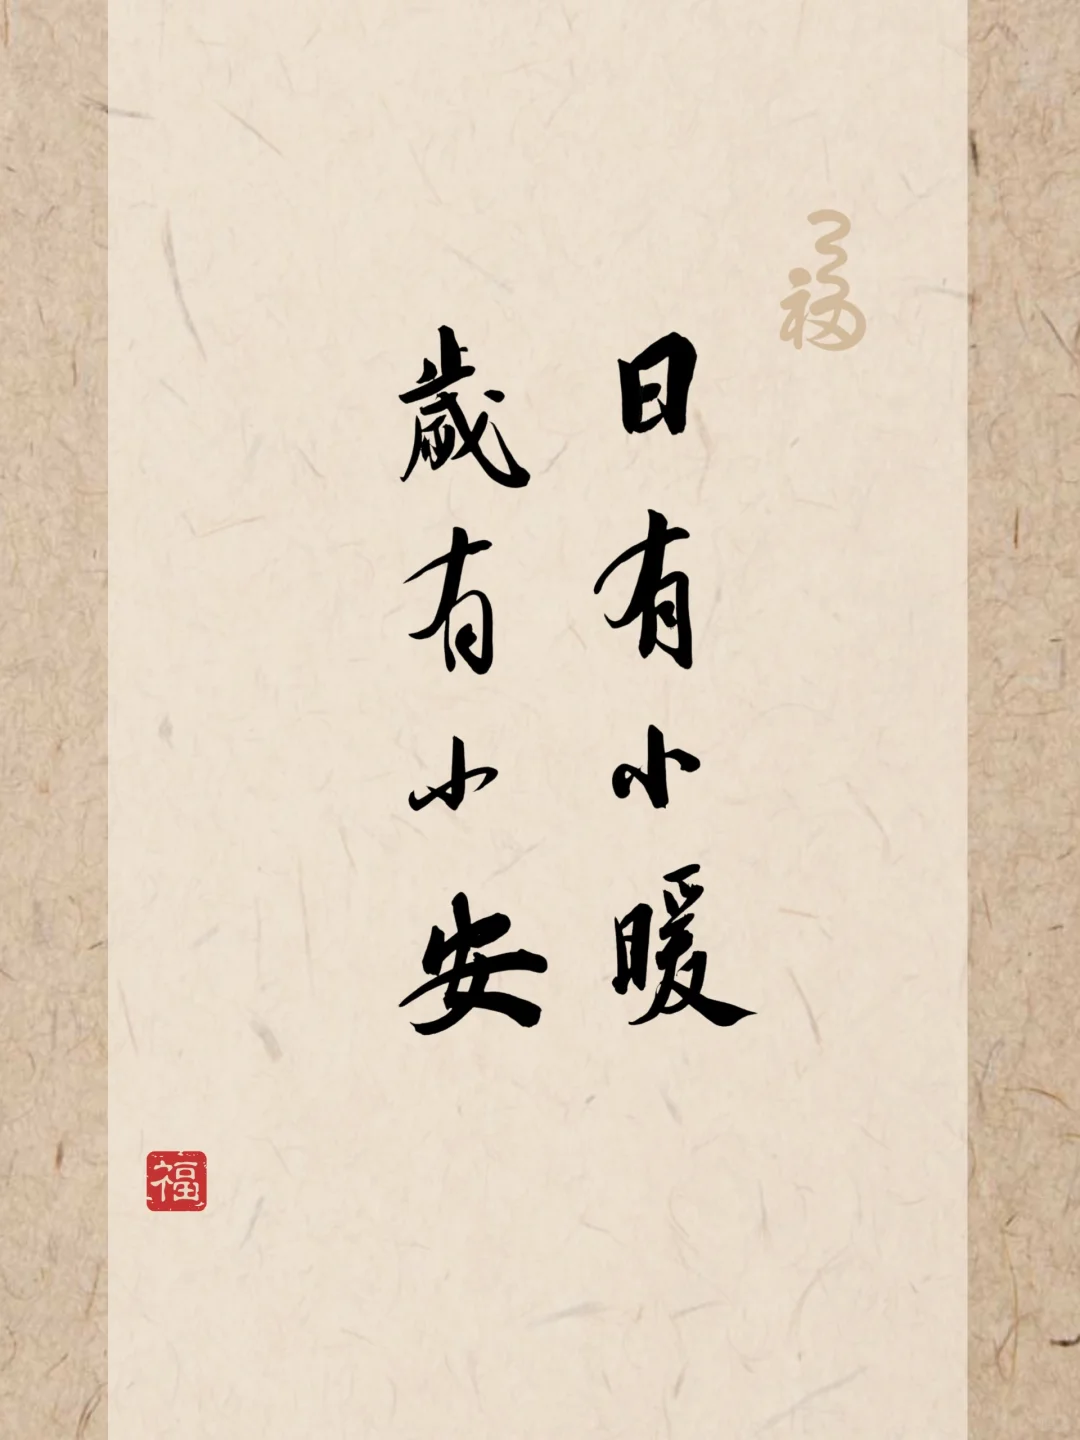 福
日有小暖
歲有小安
福